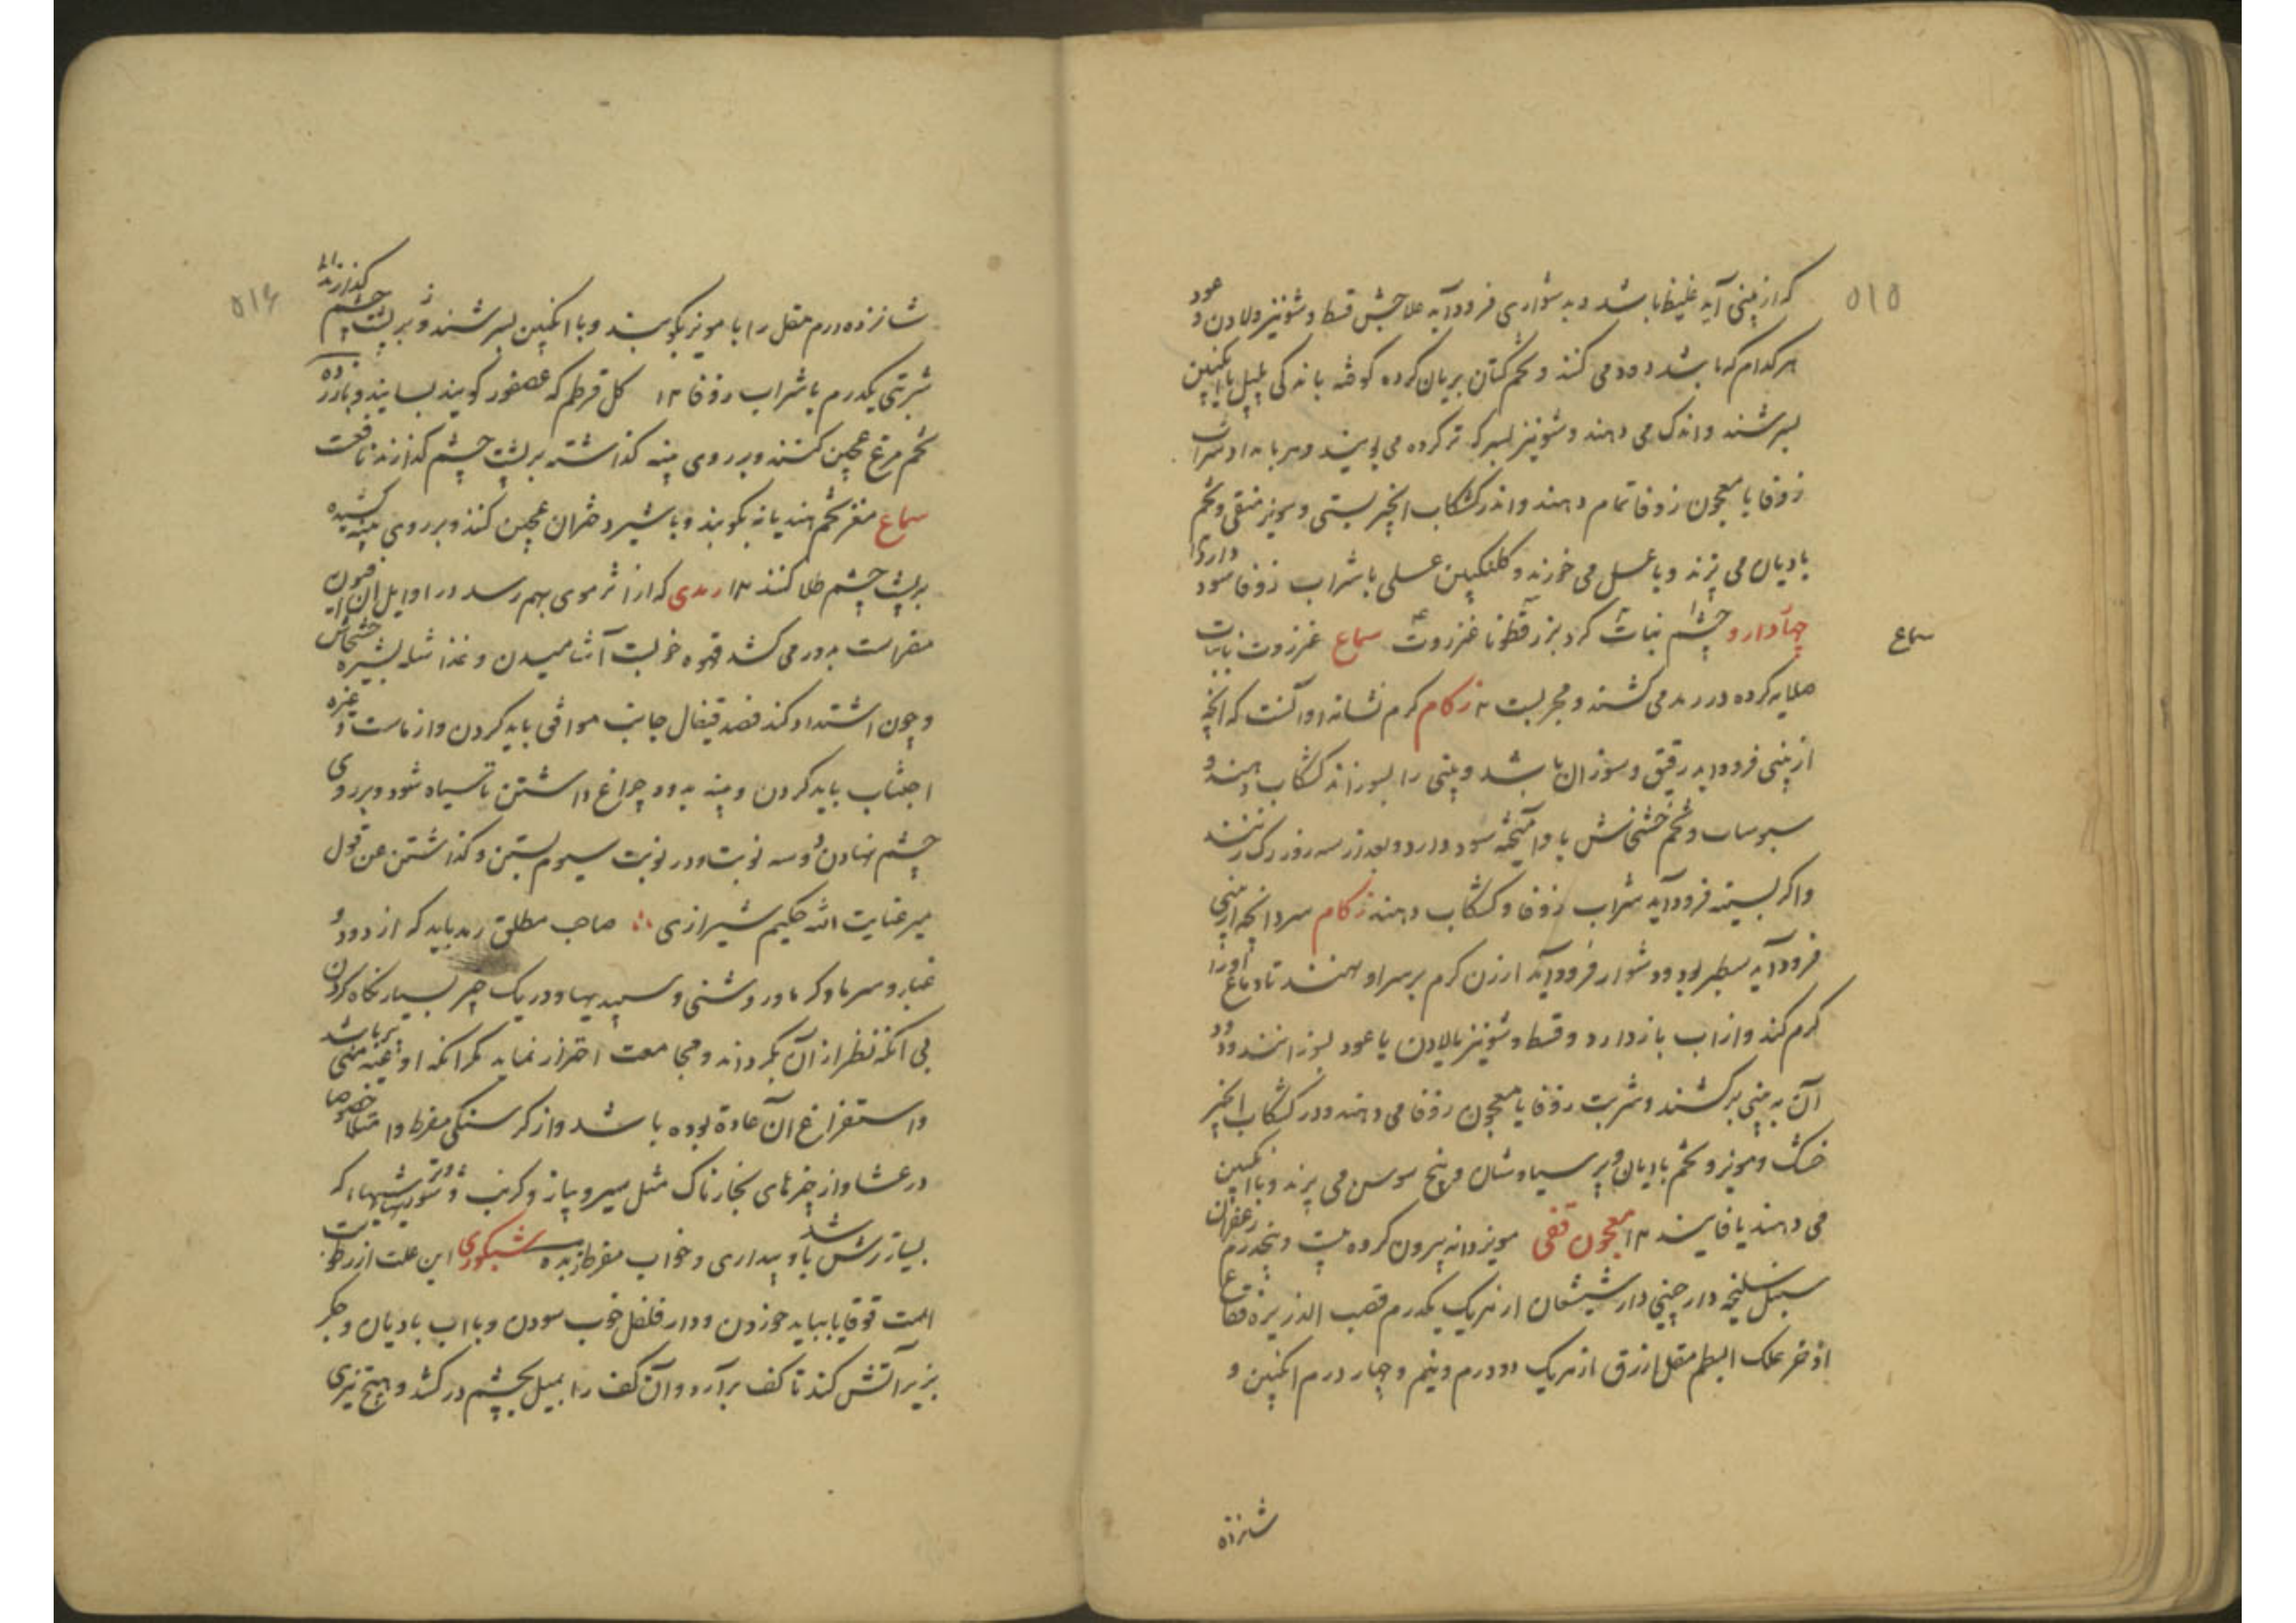 ۵۱۵
که از بینی آید غلیظ باشد و بدشواری فرود آید علاجش قسط و شونیز و لادن و عود
هر کدام که باشد دود می کنند و تخم کتان بریان کرده کوفته با اندکی پلپل با انکبین
بسرشند و اندک می دهند و شونیز بسرکه تر کرده می بویند و هر بامداد شراب
زوفا یا معجون زوفا تمام دهند و اندر کشکاب انجیر بستی و مویز منقی و تخم
بادیان می پزند و با عسل می خورند و کلنکبین عسلی با شراب زوفا سود دارد
چهآدارو چشم نبات کرد بزرقطونا عنزروت سماع عنزروت با نبات
سماع
صلایه کرده در رمد می کشند و مجربست زکام کرم نشانه او آنست که انچه
از بینی فرود اید رقیق و سوزان باشد و بینی را بسوزاند کشکاب دهند و
سبوسات و تخم خشخاش با وآمیخته سود دارد و بعد از سه روز رک زنند
واکر بسینه فرود آید شراب زوفا و کشکاب دهند زکام سرد انچه از بینی
فرود آید سطبر بود و دشوار فرود آید ارزن کرم بر سر او نهند تا دماغ اورا
کرم کند و از اب باز دارد و قسط و شونیز با لادن یا عود بسوزانند و دود
آن به بینی بر کشند و شربت زوفا یا معجون زوفا می دهند و در کشکاب انجیر
خشک و مویز و تخم بادیان و پر سیاوشان و بیخ سوسن می پزند و با انکبین
می دهند یا فانیذ ۱۲ معجون قفی مویز دانه بیرون کرده بیست و پنجدرم زعفران
سنبل سلیخه دارچینی دارشیشعان از هریک یکدرم قصب الذریره فقاع
اذخر علک البطم مقل ازرق از هریک دو درم و نیم و چهار درم انکبین و
شانزده
۵۱۶
شانزده درم مقل را با مویز بکوبند و با انکبین بسرشند و بر پشت چشم کذارند
شربتی یکدرم با شراب زوفا ۱۲ کل قرطم که عصفور کویند بسایند و با زرده
تخم مرغ عجین کنند و بر روی پنبه کذاشته بر پشت چشم کذارند نافعست
سماع مغز تخم هندیانه بکوبند و با شیر دختران عجین کنند و بر روی پنبه کشیده
بر پشت چشم طلا کنند ۱۲ رمدی که از اثر موی بهم رسد در اوایل آن افیون
مضراست بدور می کشد قهوه خوبست آشامیدن و غذا شله بشیره خشخاش
و چون اشتداد کند فصد قیفال جانب موافق باید کردن و از ماست و غیره
اجتناب باید کردن و پنبه بدود چراغ داشتن تا سیاه شود و بر روی
چشم نهادن دو سه نوبت و در نوبت سیوم بستن و کذاشتن عن قول
میر عنایت الله حکیم شیرازی صاحب مطلق رمد باید که از دود و
غبار و سرما و کرما و روشنی و سپیدیها و در یک چیز بسیار نکاه کردن
بی انکه نظر از آن بکرداند و مجامعت احتراز نماید مکر انکه اوعیه منی پر باشد
و استفراغ آن عادة بوده باشد و از کرسنکی مفرط و امتلا خصوصا
در عشا و از چیزهای بخارناک مثل سیر و پیاز و کرنب و شوریها و ترشیها که
بسیار ترش باشد و بیداری و خواب مفرط شبکوری این علت از رطوبت
است قوقایا بباید خوردن و دار فلفل خوب سودن و با اب بادیان و جکر
بز بر آتش کند تا کف برآرد و آن کف را بمیل بچشم در کشد و هیچ تیزی